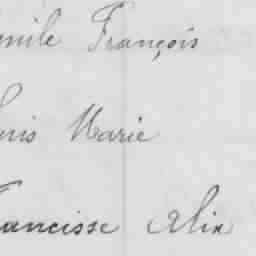 mile François
ouis Marie
rancisse Alix